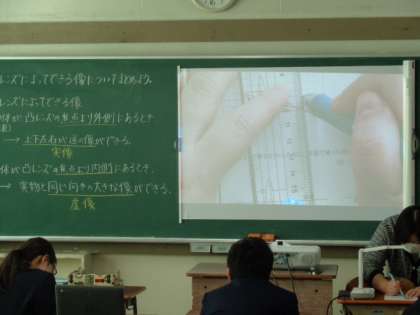 レンズによってできる像についてまとめよう。
レンズによってできる像
体が凸レンズの焦点より外側にあるとき
→ 上下左右が逆の像ができる。
実像
体が凸レンズの焦点より内側にあるとき、
→ 実物と同じ向きの大きな像ができる。
虚像